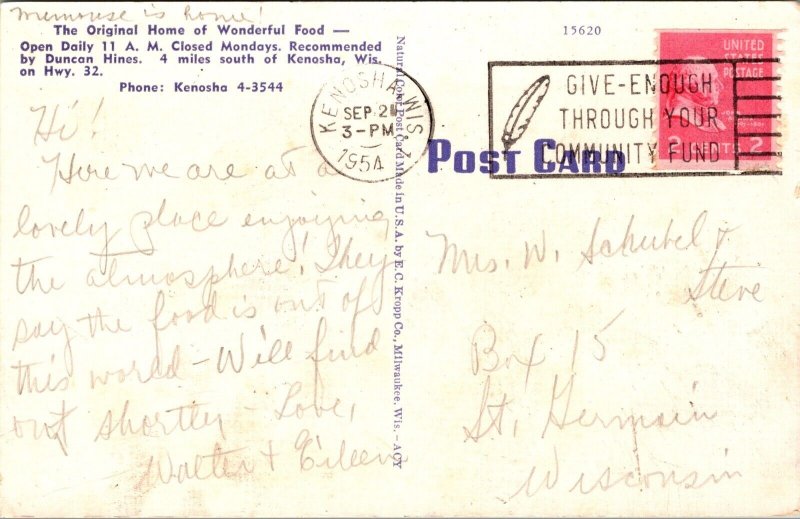 is home!
The Original Home of Wonderful Food —
Open Daily 11 A. M. Closed Mondays. Recommended
by Duncan Hines. 4 miles south of Kenosha, Wis.
on Hwy. 32.
Phone: Kenosha 4-3544
Hi!
Here we are at a
lovely place enjoying
the atmosphere! They
say the food is out of
this world - Will find
out shortly - Love,
Walter + Eileen
Natural Color Post Card Made in U.S.A. by E.C. Kropp Co., Milwaukee, Wis. - ACY
15620
KENOSHA, WIS.
SEP 2
3-PM
1954
GIVE-ENOUGH
THROUGH YOUR
COMMUNITY FUND
UNITED
STATES
POSTAGE
2 CENTS 2
POST CARD
Mrs. W. Scheibel +
Steve
Box 15
St. Germain
Wisconsin